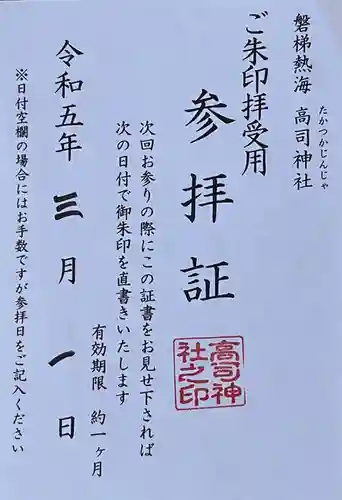 磐梯熱海 高司神社
たかつかじんじゃ
ご朱印拝受用
参拝証
次回お参りの際にこの証書をお見せ下されば
次の日付で御朱印を直書きいたします
有効期限 約一ヶ月
令和五年 三月 一日
※日付空欄の場合にはお手数ですが参拝日をご記入ください
高司神
社之印